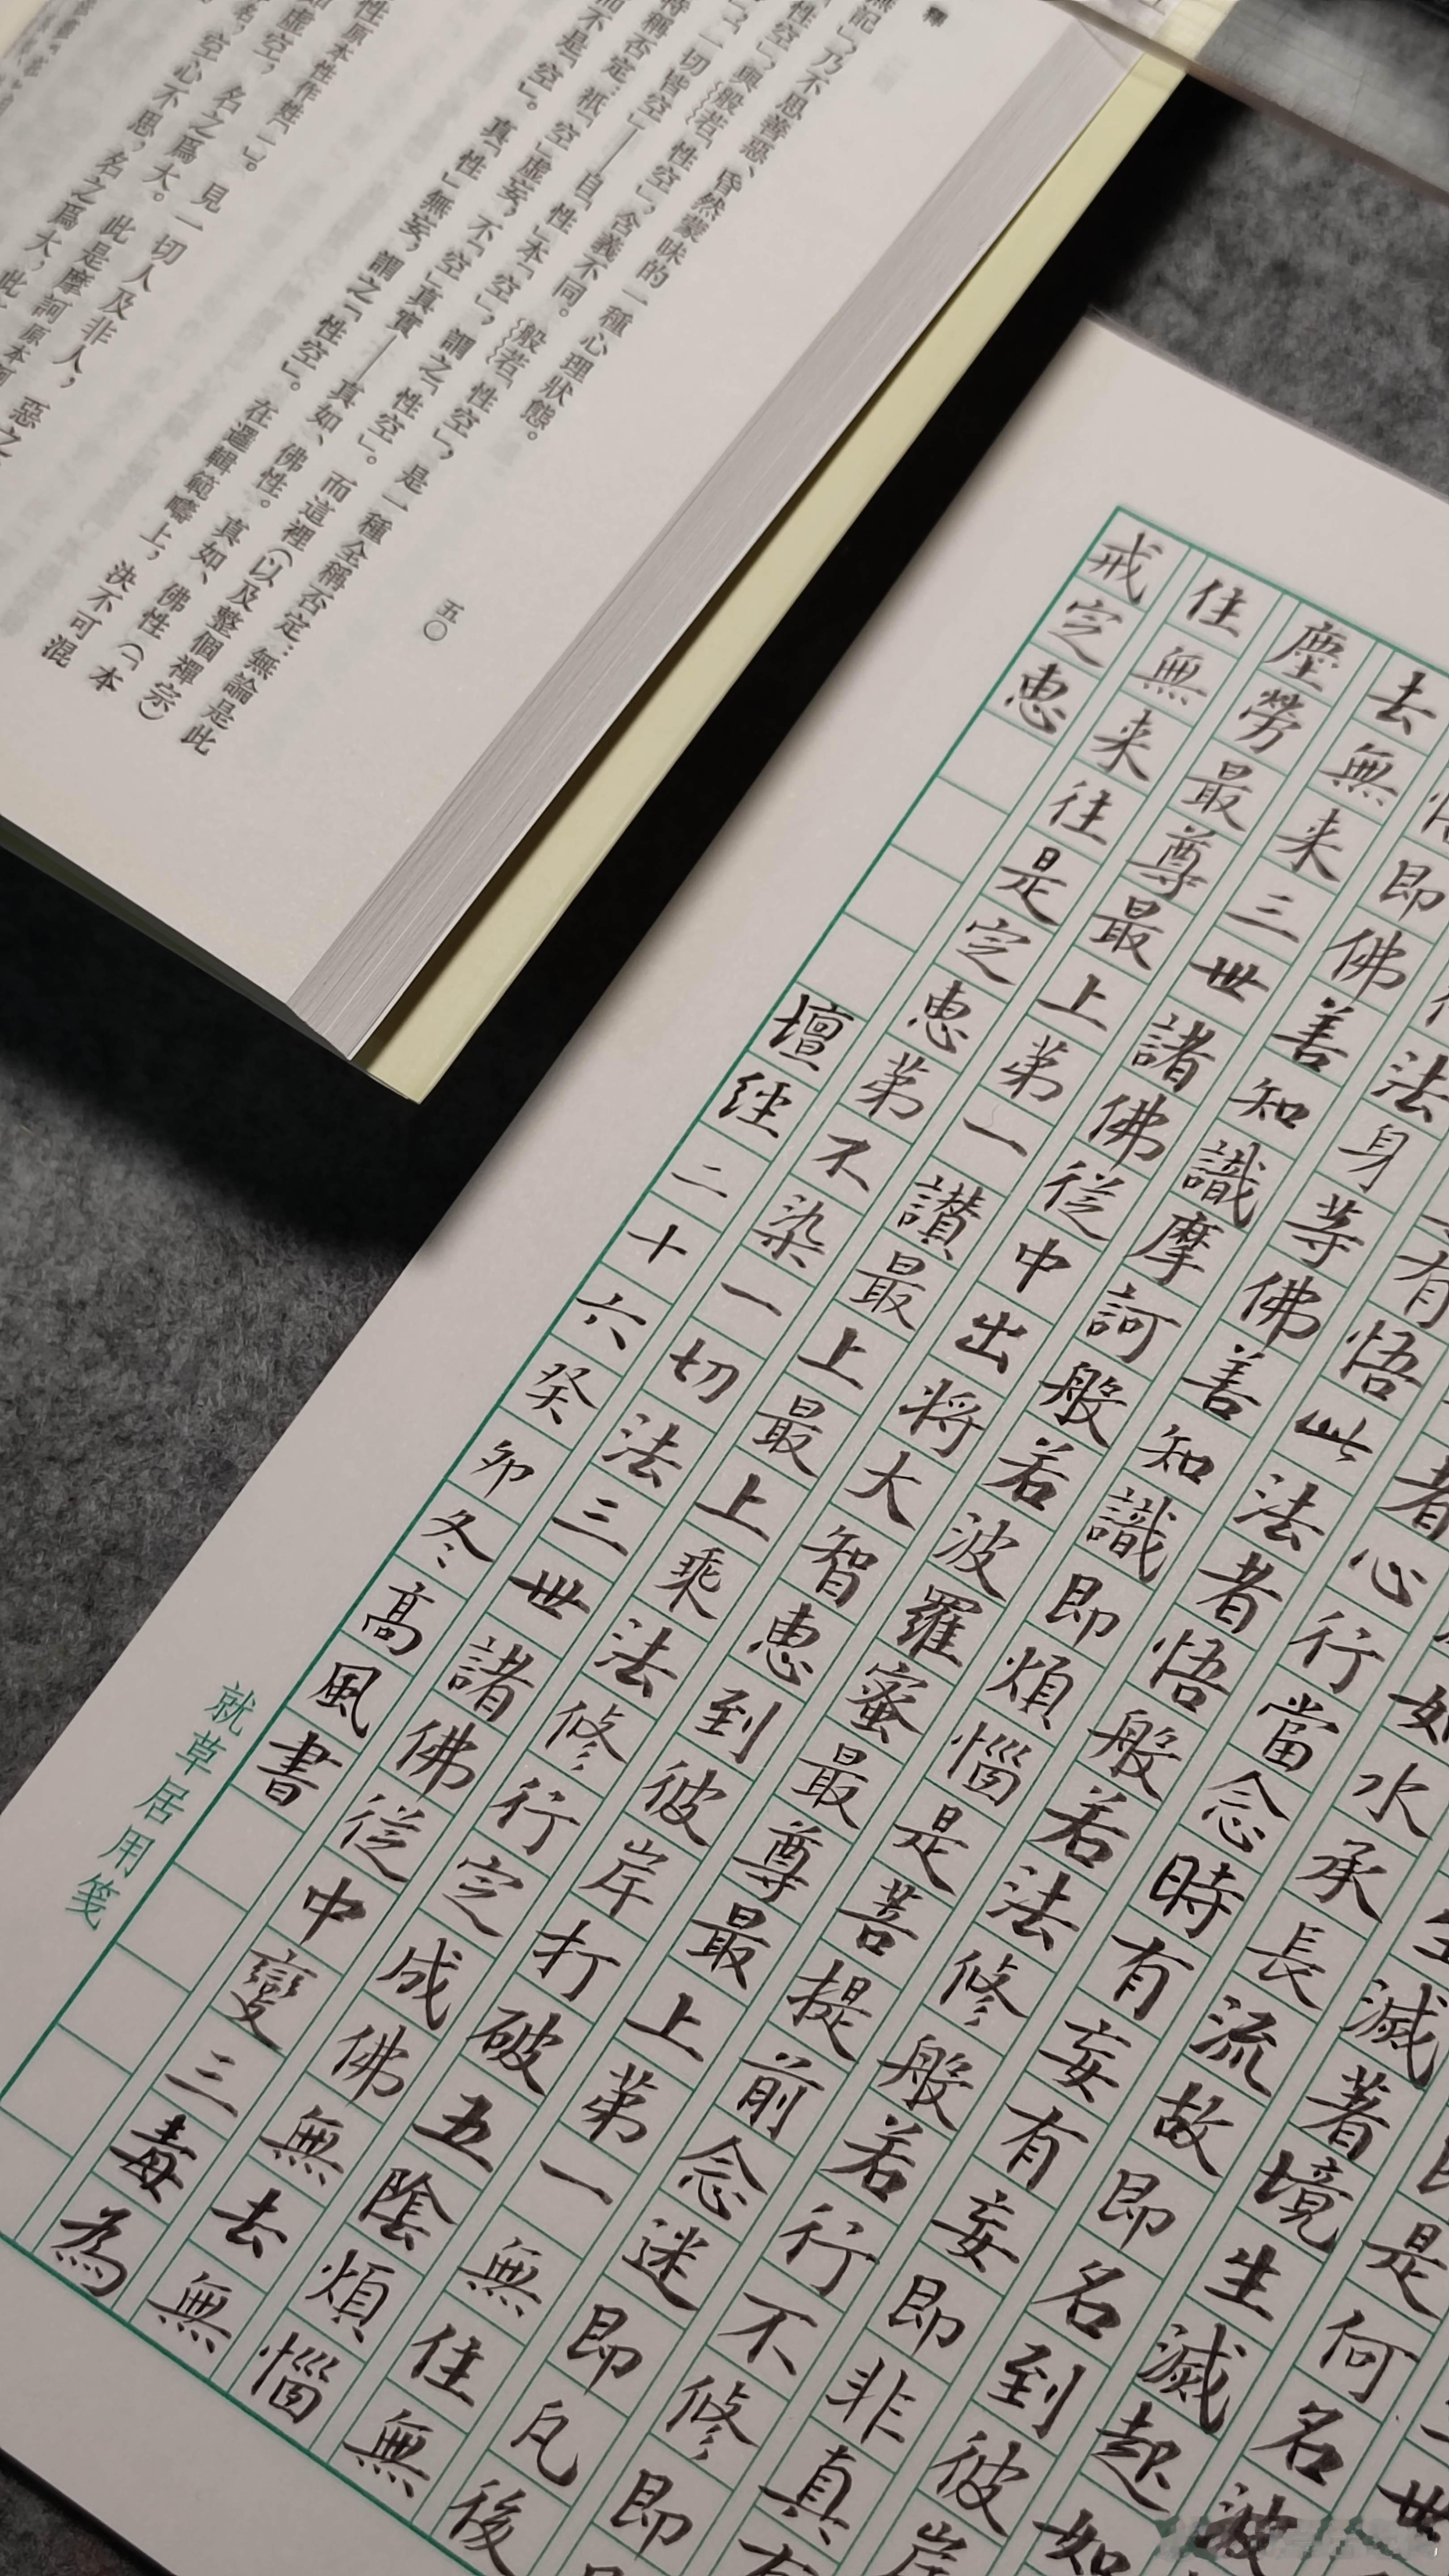 釋
無記」，乃不思善惡、昏然蒙昧的一種心理狀態。
性空」，與般若「性空」，含義不同。般若「性空」，是一種全稱否定：無論是此
「一切皆空」——自「性」本「空」，謂之「性空」。而這裡（以及整個禪宗）
特稱否定：祇「空」虛妄，不「空」真實——真如、佛性。真如、佛性（「本
而不是「空」。真「性」無妄，謂之「性空」。在邏輯範疇上，決不可混
性原本性作姓「」。見一切人及非人，惡之
虛空，名之爲大。此是摩訶原本訶
空心不思，名之爲大，此
五〇
世
是何名波
滅著境生滅起如
如水承長流故即名到彼岸
者心行當念時有妄有妄即非真有
有悟此法者悟般若法修般若行不修即
法身等佛善知識即煩惱是菩提前念迷即凡後
即佛善知識摩訶般若波羅蜜最尊最上第一無住無
去無来三世諸佛從中出將大智惠到彼岸打破五陰煩惱
塵勞最尊最上第一讚最上最上乘法修行定成佛無去無
住無来往是定惠第不染一切法三世諸佛從中變三毒為
戒定惠 壇經二十六癸卯冬高風書
就草居用箋